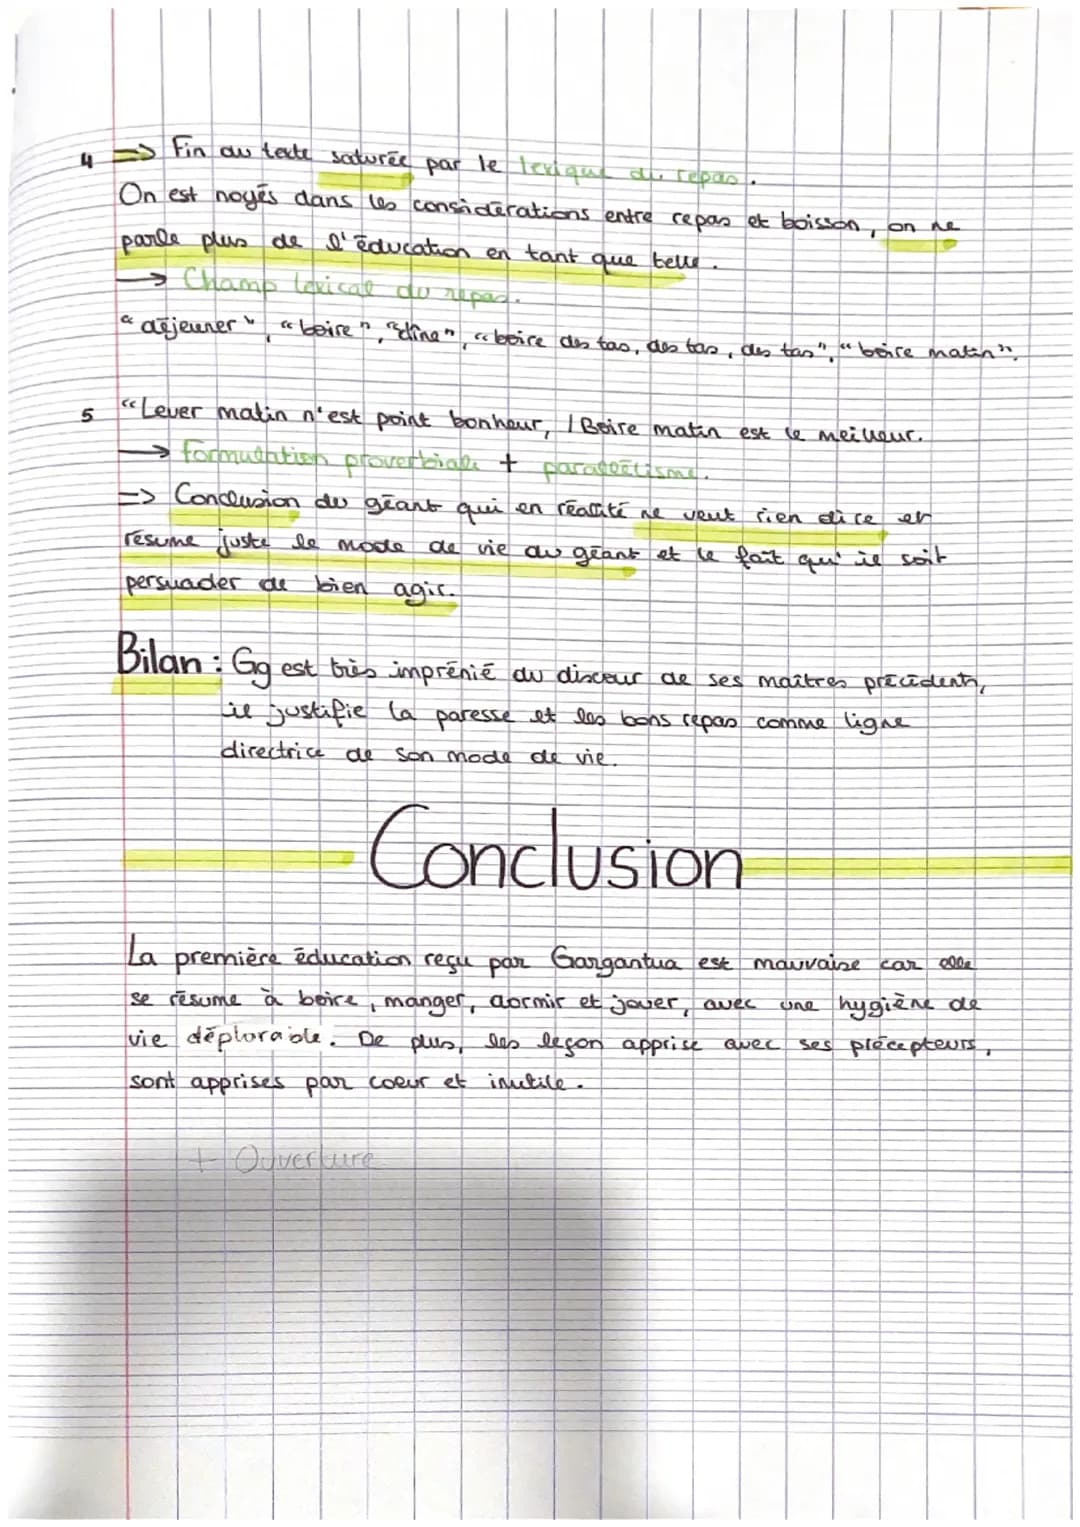 4 => Fin du texte saturée par le lexique du repas.
On est noyés dans les considérations entre repas et boisson, on ne
parle plus de l'éducation en tant que telle.
→ Champ lexical du repas.
"déjeuner", "boire", "dîne", "boire des tas, des tas, des tas", "boire matin".
5 "Lever matin n'est point bonheur, / Boire matin est le meilleur.
→ formulation proverbiale + parallélisme.
=> Conclusion du géant qui en réalité ne veut rien dire et
résume juste le mode de vie du géant et le fait qu'il soit
persuader de bien agir.
Bilan : Gg est très imprénié du discour de ses maîtres précédents,
il justifie la paresse et les bons repas comme ligne
directrice de son mode de vie.
Conclusion
La première éducation reçu par Gargantua est mauvaise car elle
se résume à boire, manger, dormir et jouer, avec une hygiène de
vie déplorable. De plus, les leçon apprise avec ses précepteurs,
sont apprises par coeur et inutile.
+ Ouverture